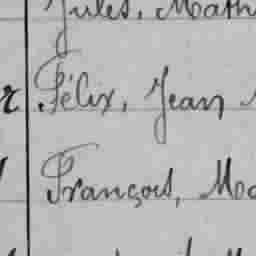 Jules, Math
Félix, Jean
François, Mo